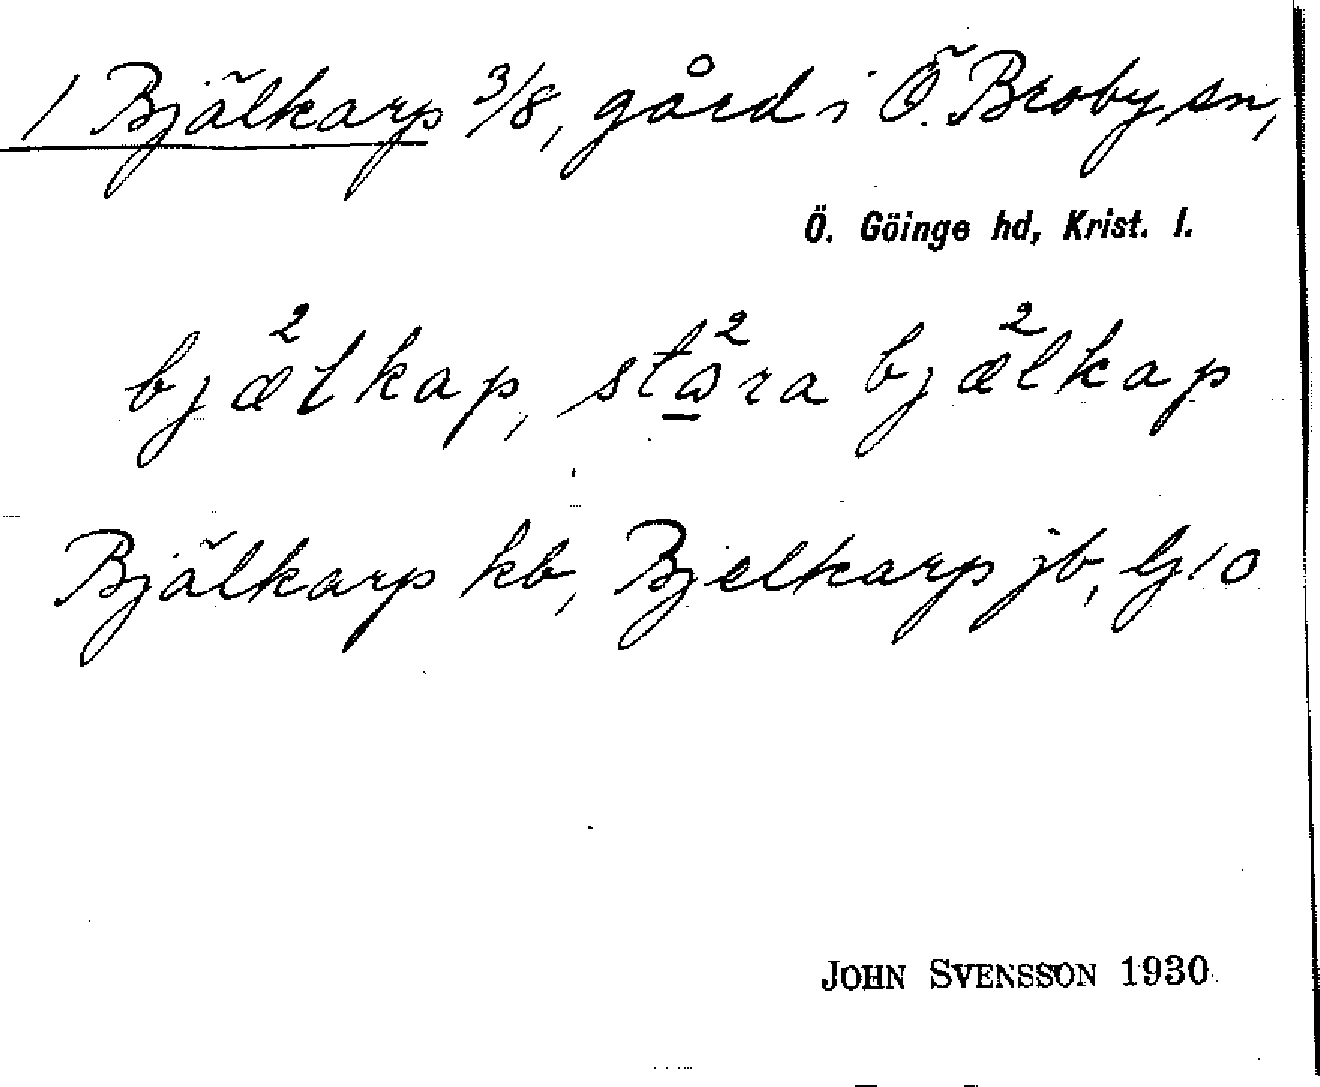 1 Bjälkarp 3/8, gård i Ö. Broby sn,
Ö. Göinge hd, Krist. l.
bjæ²lkap, stɷ²ra bjæ²lkap
Bjälkarp kb, Bjelkarp jb, Gj10
JOHN SVENSSON 1930